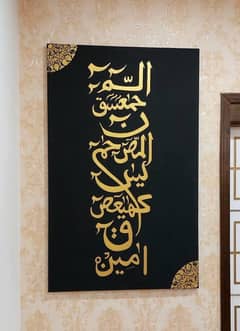 الٓمّٓ
حمعسق
ن
المص حم
يس
كهيعص
ق
امين